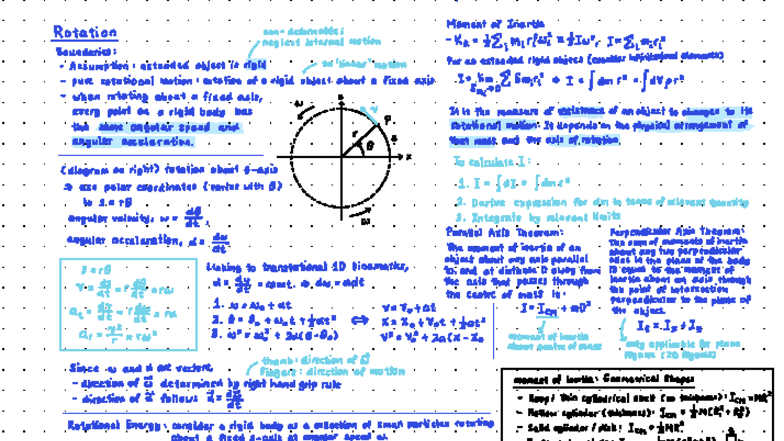 Rotation
non-deformable;
neglect internal motion
Boundaries:
- Assumption: extended object is rigid
no "linear" motion
- pure rotational motion: rotation of a rigid object about a fixed axis
- when rotating about a fixed axis,
every point on a rigid body has
the same angular speed and
angular acceleration.
(diagram on right) rotation about z-axis
⇒ use polar coordinates (varies with θ)
angular velocity, ω = dθ/dt,
angular acceleration, α = dω/dt
s = rθ
v = ds/dt = r dθ/dt = rω
a_t = dv/dt = r dω/dt = rα
a_r = v²/r = rω²
ω
P
r
θ
s
x
Linking to translational 1D kinematics,
α = dω/dt = const. ⇒ dω = αdt
1. ω = ω₀ + αt
2. θ = θ₀ + ω₀t + ½αt²
3. ω² = ω₀² + 2α(θ-θ₀)
⇔
v = v₀ + at
x = x₀ + v₀t + ½at²
v² = v₀² + 2a(x-x₀
Since ω and α are vectors,
- direction of ω determined by right hand grip rule
- direction of α follows α = dω/dt
thumb: direction of ω
fingers: direction of motion
Rotational Energy: consider a rigid body as a collection of small particles rotating
about a fixed z-axis at angular speed ω.
Moment of Inertia
- K_R = ½ Σ_i m_i r_i² ω_i² = ½Iω², I = Σ_i m_i r_i²
For an extended rigid object (consider infinitesimal elements)
I = lim Σ δm_i r_i² ⇒ I = ∫ dm r² = ∫ dV ρr²
It is the measure of resistance of an object to changes to its
rotational motion. It depends on the physical arrangement of
that mass and the axis of rotation.
To calculate I:
1. I = ∫ dI = ∫ dm r²
2. Derive expression for dm in terms of relevant quantity
3. Integrate by relevant limits
Parallel Axis Theorem:
The moment of inertia of an
object about any axis parallel
to and at distance D away from
the axis that passes through
the centre of mass is:
I = I_CM + mD²
moment of inertia
about centre of mass
Perpendicular Axis Theorem:
The sum of moments of inertia
about any two perpendicular
axes in the plane of the body
is equal to the moment of
inertia about an axis through
the point of intersection
perpendicular to the plane of
the object.
only applicable for plane
figures (2D figures)
moment of inertia: Geometrical Shapes
- Hoop/ thin cylindrical shell (no thickness): I_CM = MR²
- Hollow cylinder (thickness): I_CM = ½M(R₁² + R₂²)
- Solid cylinder / disk: I_CM = ½MR²